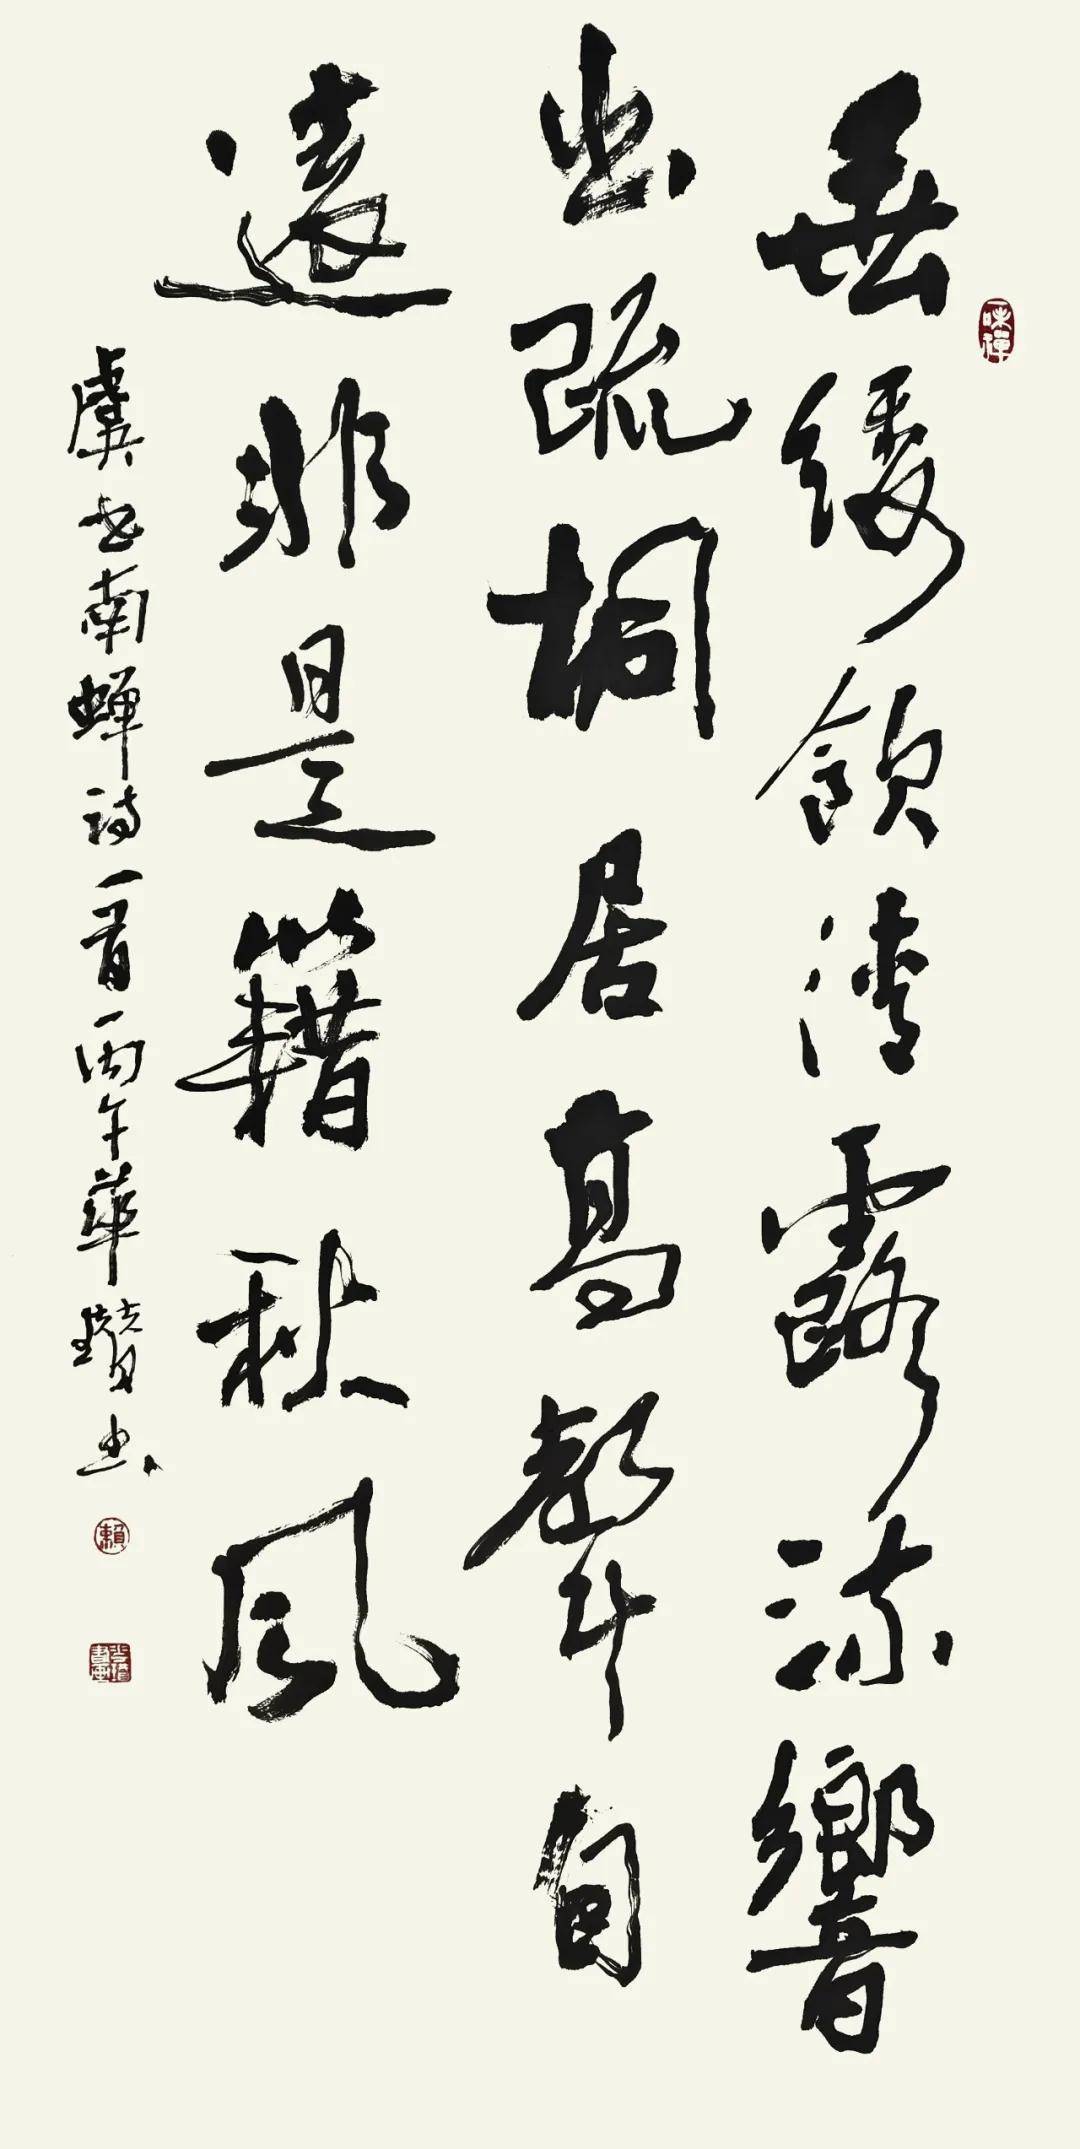 味禪
垂緌飲清露流響
出疏桐居高聲自
遠非是籍秋風
虞世南蝉詩一首丙午華瓚书
賴